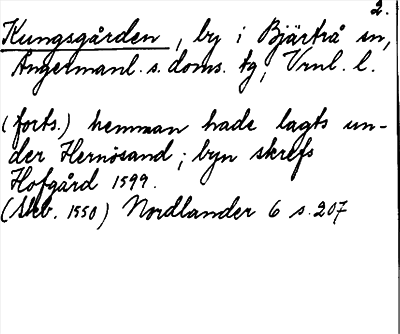 2.
Kungsgården, by i Bjärtrå sn,
Ångermanl. s. doms. tg, Vrnl. l.
(forts.) hemman hade lagts un-
der Hernösand; byn skrefs
Hofgård 1599.
(Skb. 1550) Nordlander 6 s. 207